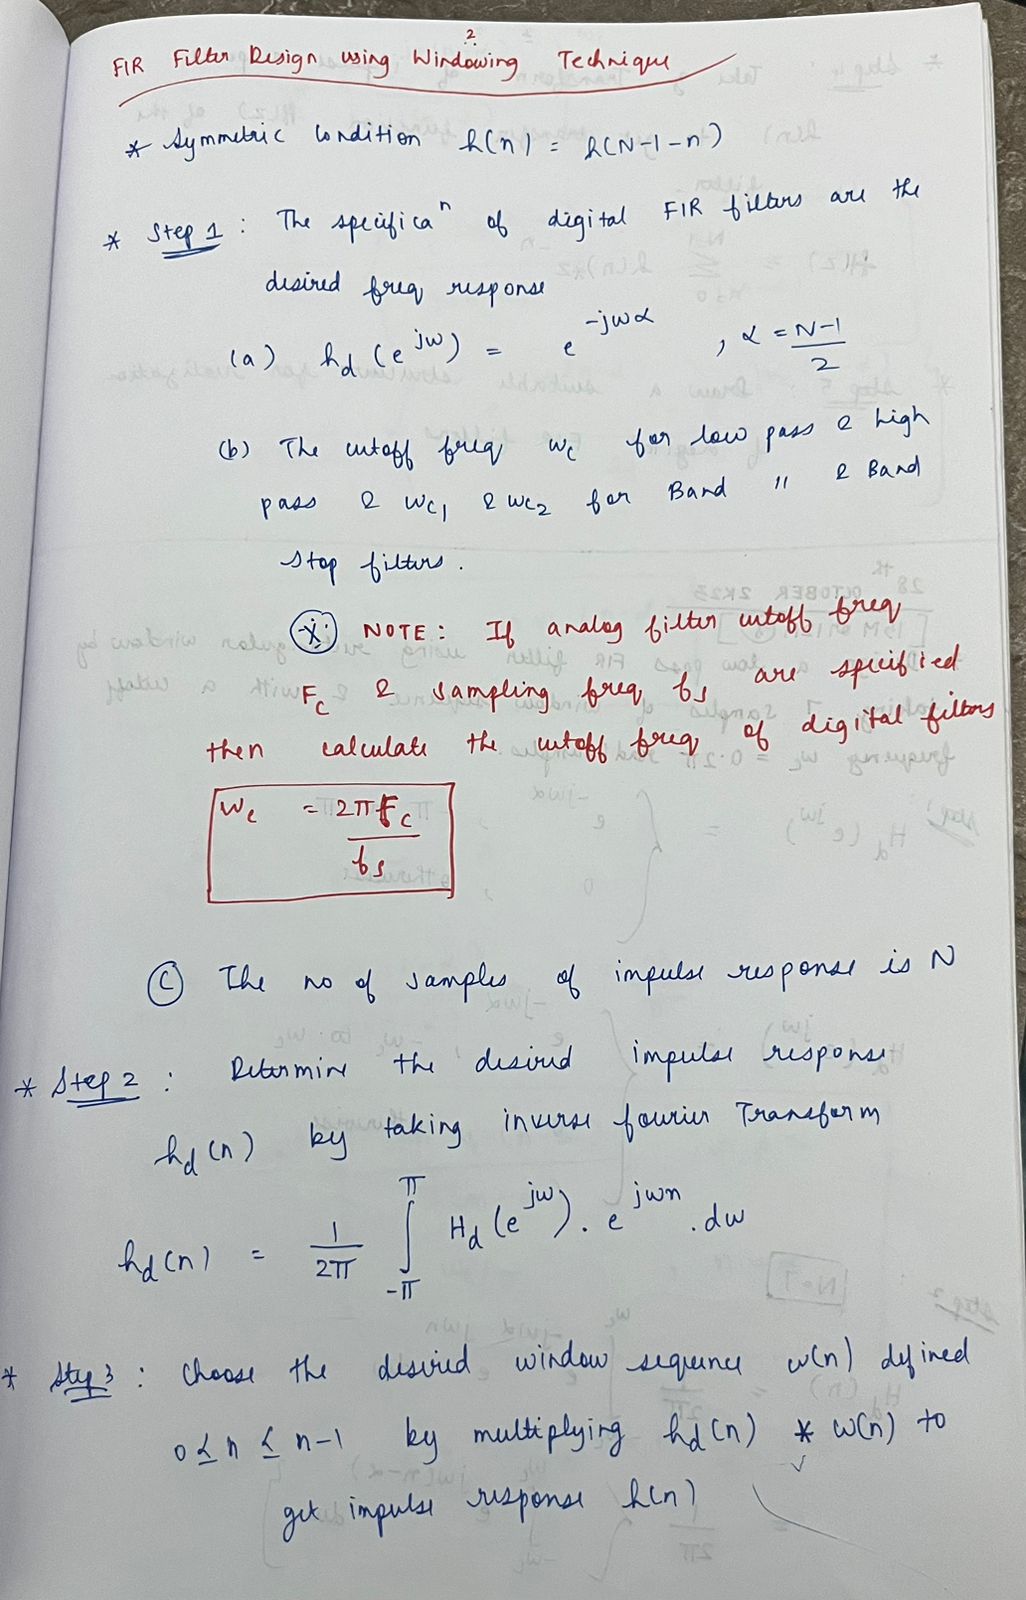 2
FIR Filter Design using Windowing Technique
* Symmetric Condition h(n) = h(N-1-n)
* Step 1 : The specificaⁿ of digital FIR filters are the
desired freq response
(a) hd (e^jw) = e^-jwα , α = N-1/2
(b) The cutoff freq wc for low pass & high
pass & wc1 & wc2 for Band " & Band
stop filters.
* NOTE : If analog filter cutoff freq
Fc & sampling freq fs are specified
then calculate the cutoff freq of digital filters
wc = 2πFc/fs
(C) The no of samples of impulse response is N
* Step 2 : Determine the desired impulse response
hd(n) by taking inverse fourier Transform
hd(n) = 1/2π ∫_-π^π Hd(e^jw). e^jwn .dw
* Step 3 : Choose the desired window sequence w(n) defined
0 ≤ n ≤ n-1 by multiplying hd(n) * w(n) to
get impulse response h(n)